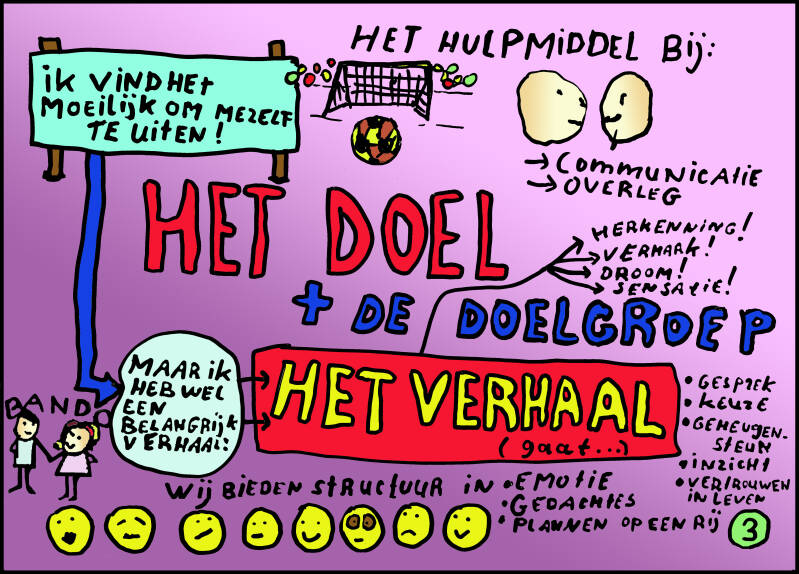 HET HULPMIDDEL BIJ:
IK VIND HET
MOEILIJK OM MEZELF
TE UITEN!
→ COMMUNICATIE
→ OVERLEG
HET DOEL
HERKENNING!
VERMAAK!
DROOM!
SENSATIE!
+ DE DOELGROEP
MAAR IK
HEB WEL
EEN
BELANGRIJK
VERHAAL:
BAND
HET VERHAAL
(gaat...)
• GESPREK
• KEUZE
• GEHEUGEN-
STEUN
• INZICHT
• VERTROUWEN
IN LEVEN
WIJ BIEDEN STRUCTUUR IN • EMOTIE
• GEDACHTES
• PLANNEN OP EEN RIJ
3